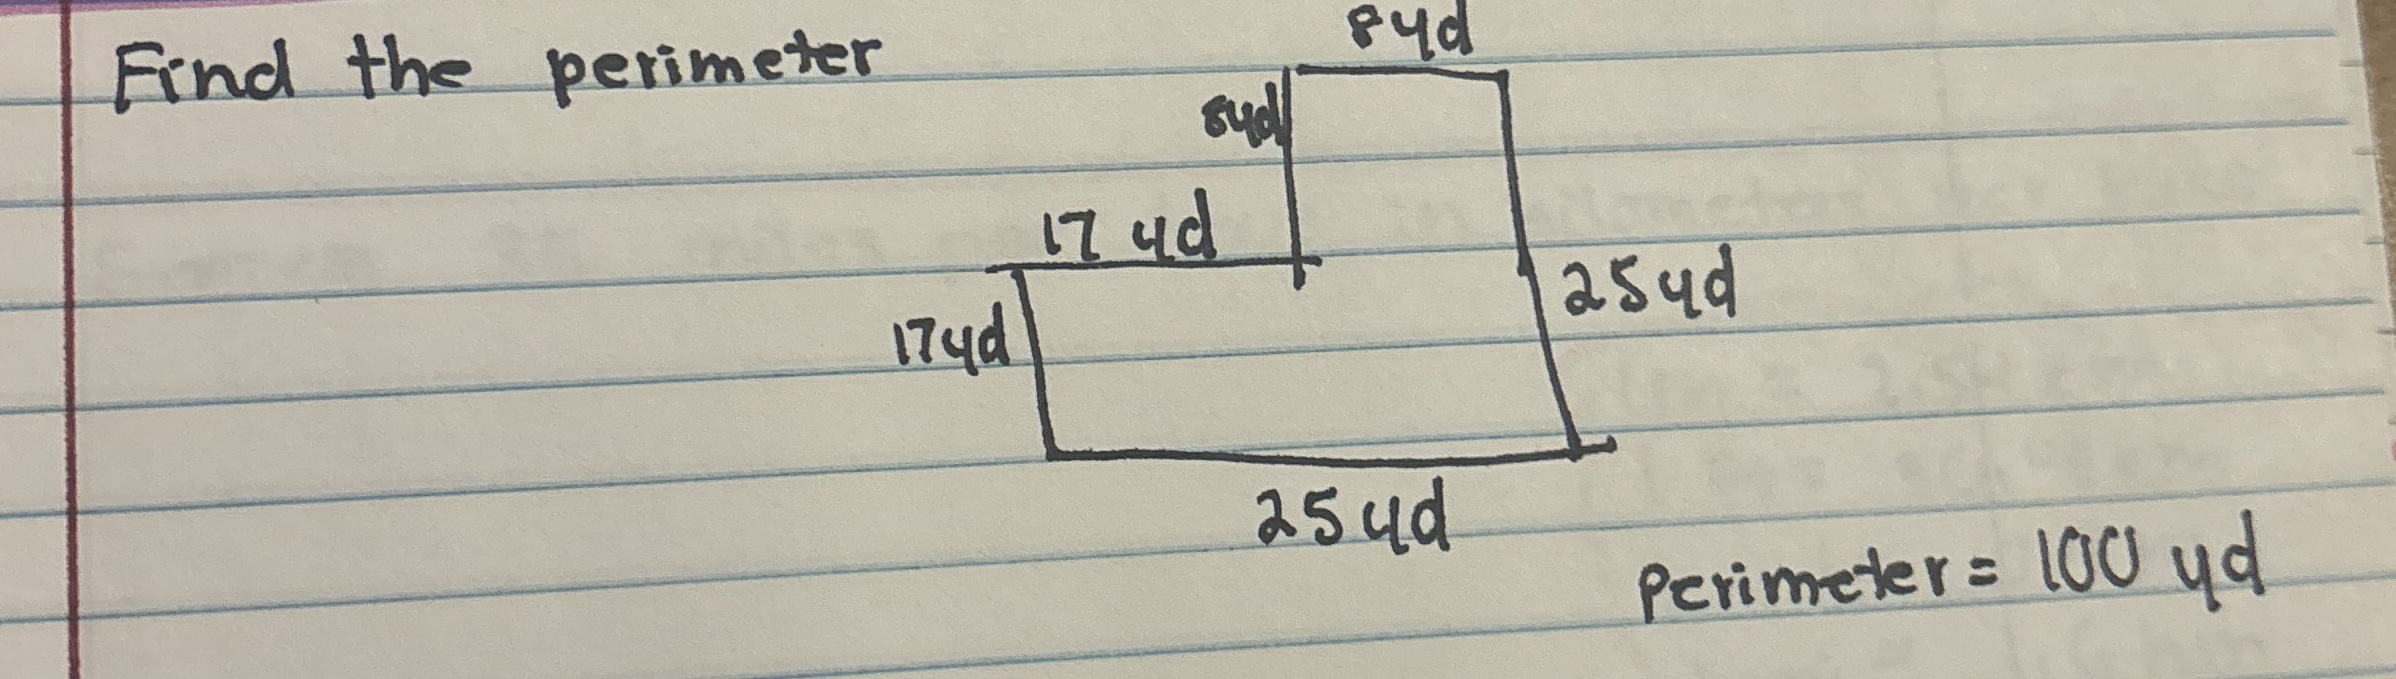 Find the perimeter
8yd
8yd
17 yd
17yd
25yd
25yd
Perimeter = 100 yd